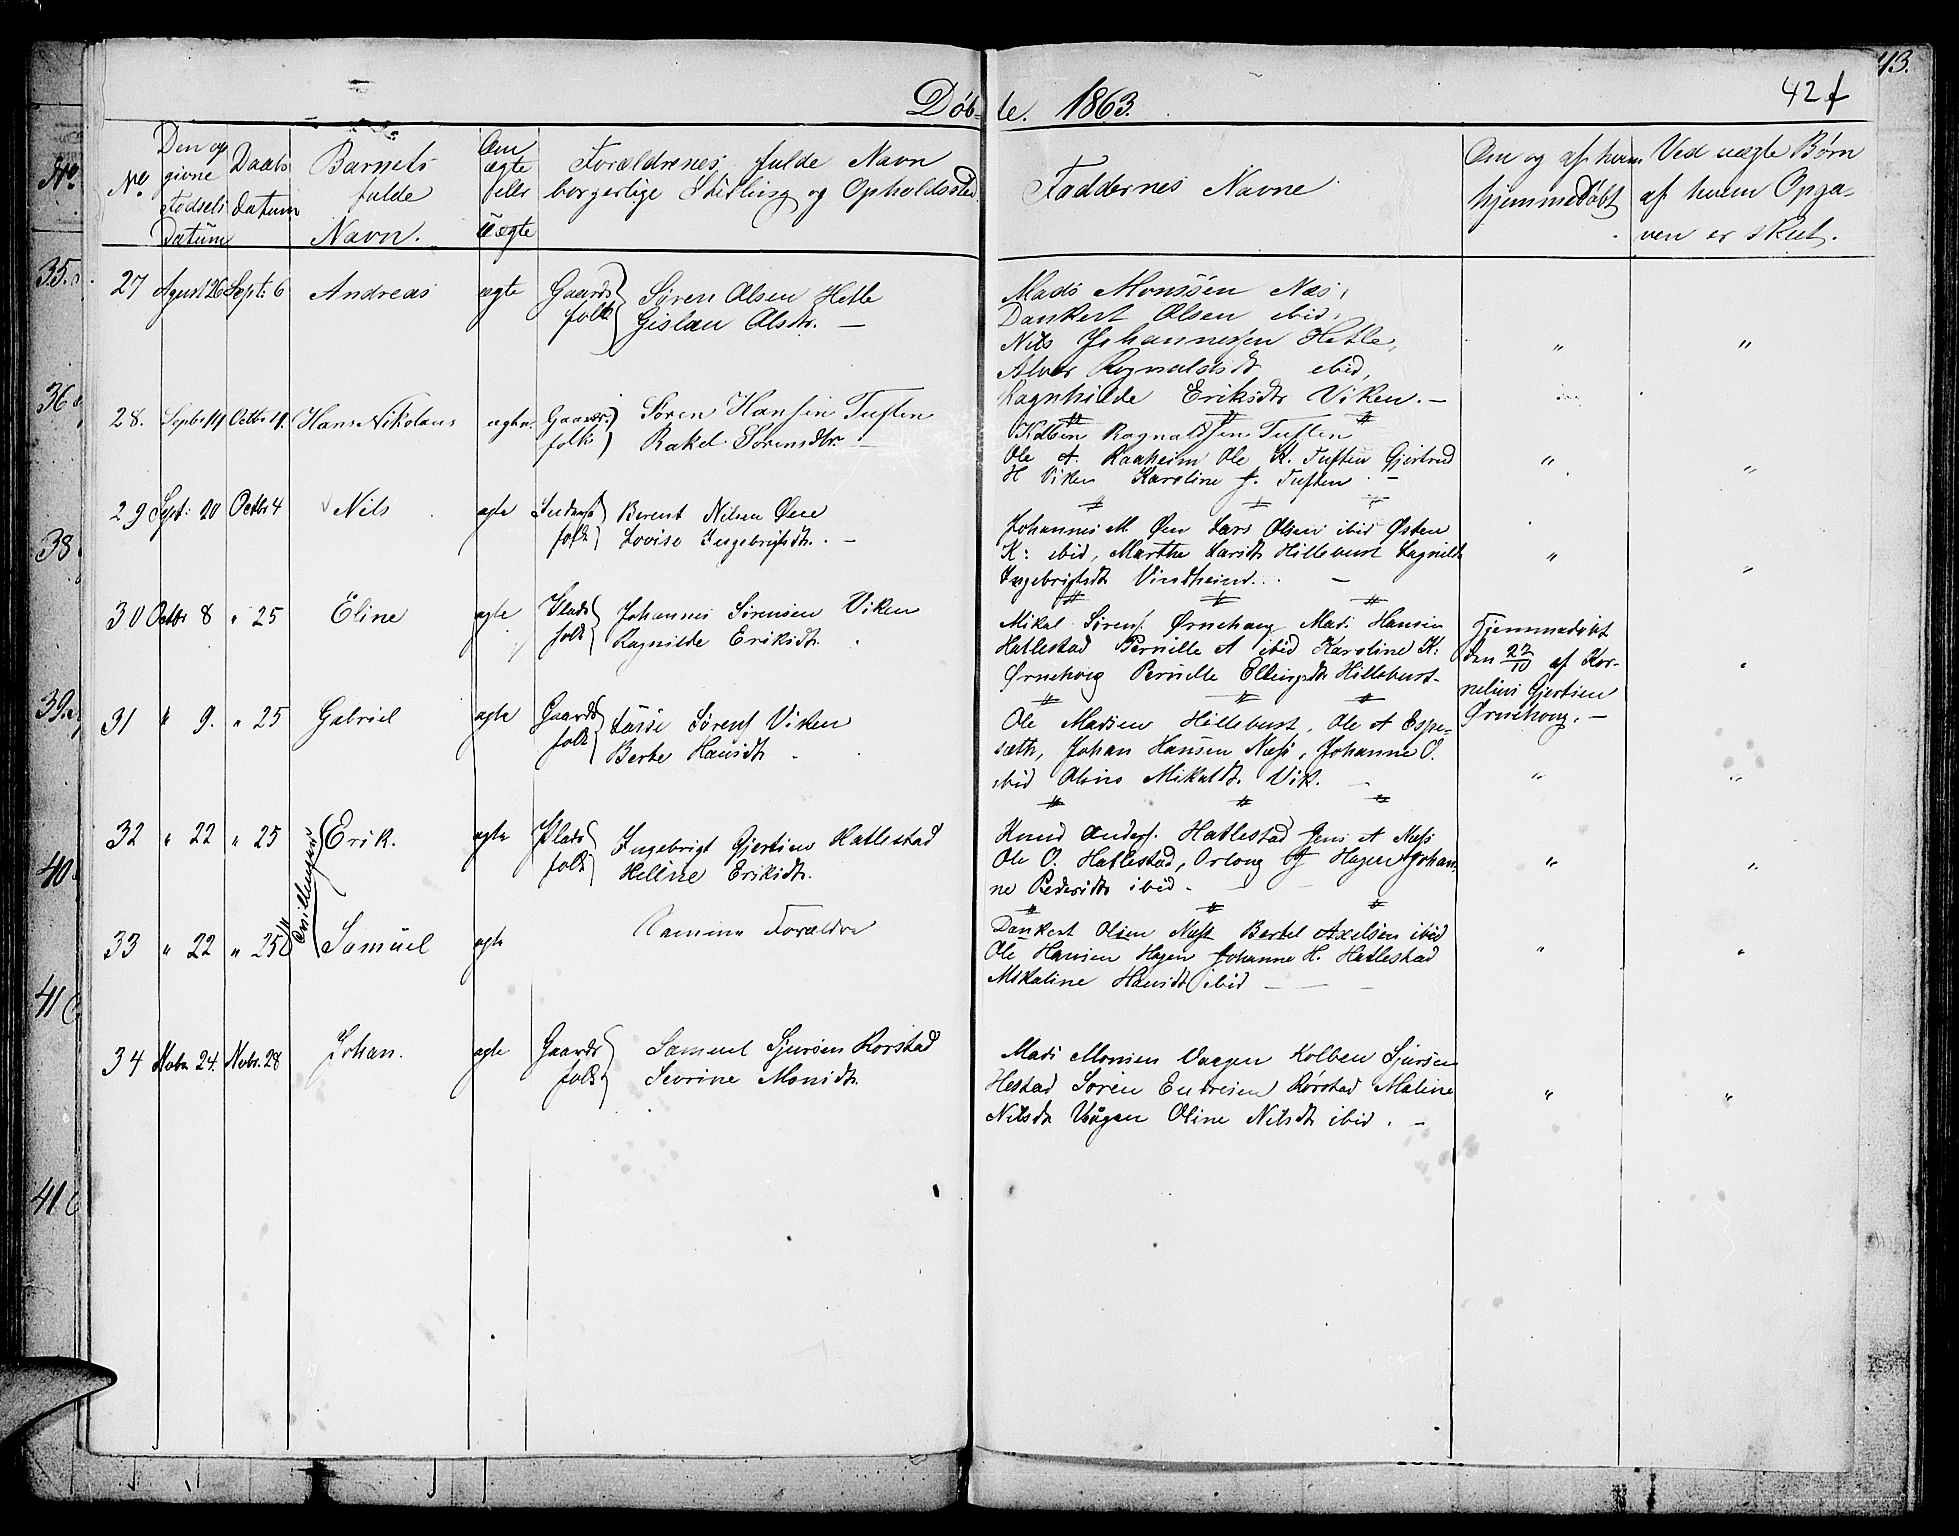 43.
42 f
Døbte. 1863.
No
No
Den op
givne
Fødsels
Datum
Daabs
datum
Barnets
fulde
Navn.
Om
ægte
eller
Uægte
Forældrenes fulde Navn
borgerlige Stilling og Opholdssted
Faddernes Navne
Om og af hvem
hjemmedøbt
Ved uægte Børn
af hvem Opga-
ven er skeet.
35.
36
38
39
40
41
41
27 August 26 Sept: 6 Andreas ægte Gaards
folk Søren Olsen Hetle
Gislau Olsdtr. —
Mads Monssen Næs,
Dankert Olsen ibid,
Nils Johannessen Hetle,
Rognaldsdt ibid, " "
Ragnhilde Eriksdtr Viken. —
28. Septbr Octbr 4. Hans Nikolaus ægte Gaards
folk Søren Hansen Tuften
Rakel Sørensdtr. —
Kolben Ragnaldsen Tuften
Ole A. Raaheim Ole K. Tuften Gjertrud " "
H Viken Karoline J. Tuften. —
29 Sept: 20 Octbr 4 Nils ægte
folk Berent Nilsen Øen
Lovise Ingebrigtsdtr. —
Johannes M Øen Lars Olsen ibid Østen
K: ibid, Marthe Larsdtr Hilleburst Ragnilde " "
Ingebrigtsdt Vindheim. —
30 Octbr 8 " 25 Eline ægte Plads
folk Johannes Sørensen Viken
Ragnilde Eriksdtr.
Mikal Sørens. Ørnehoug Mads Hansen
Hatlestad Pernille A ibid Karoline K:
Ørnehoug Pernille Ellingsdtr Hilleburst-
Hjemmedøbt
den 22/10 af Kor-
nelius Gjertsen
Ørnehoug. —
31 " 9. " 25 Gabriel ægte Gaards
folk Lasse Sørens Viken
Berte Hansdtr.
Ole Madsen Hilleburst, Ole A Espe-
sæth, Johan Hansen Næss, Johanne O.
ibid Oline Mikaldt. Vik. — " "
32 " 22 " 25 Erik. ægte Plads
folk Ingebrigt Gjertsen Hatlestad
Helline Eriksdtr.
Tvillinger
Knud Anders. Hatlestad Jens A Næss
Ole O. Hatlestad, Hagen Johan- " "
ne Pedersdtr ibid.
33 " 22 " 25 Samuel ægte Samme Forældre
Dankert Olsen Næss Bertel Axelsen ibid
Ole Hansen Hagen Johanne H. Hatlestad " "
Mikaline Hansdtr ibid —
34 Novbr. 24. Novbr. 28 Johan. ægte Gaards
folk Samuel Sjursen Rorstad
Severine Monsdtr.
Mads Monsen Vaagen Kolben Sjursen
Hestad Søren Endresen Rørstad Maline
Nilsdtr Vågen Oline Nilsdtr ibid. — " "